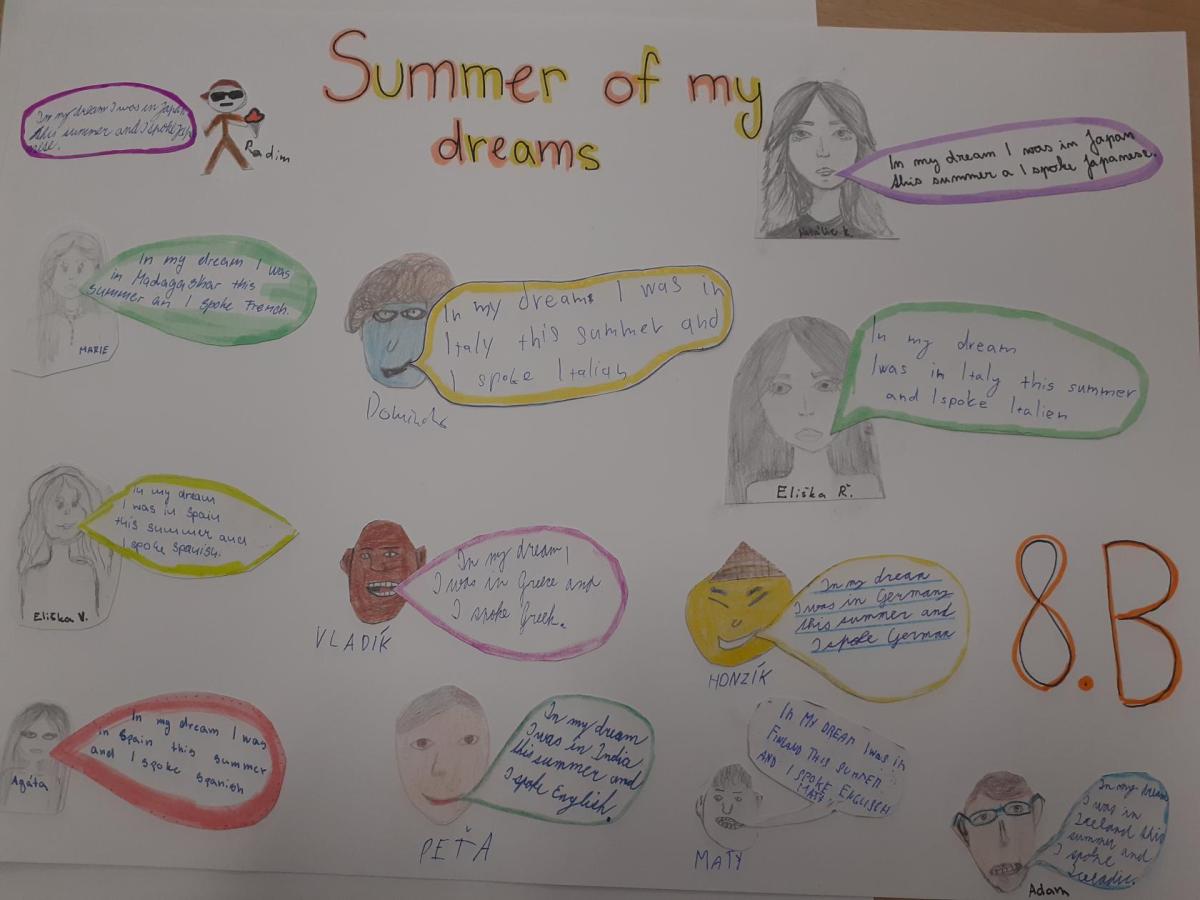 Summer of my
dreams
In my dream I was in Japan
this summer and I spoke Jap
nese.
Radim
In my dream I was in Japan
this summer a I spoke Japanese.
Natálie K.
In my dream I was
in Madagaskar this
summer an I spoke French.
MARIE
In my dreams I was in
Italy this summer and
I spoke Italian
In my dream
I was in Italy this summer
and I spoke Italien
Eliška Ř.
In my dream
I was in Spain
this summer and
I spoke Spanish.
Eliška V.
In my dream,
I was in Greece and
I spoke Greek.
VLADÍK
In my dream
I was in Germany
this summer and
I spoke German
HONZÍK
8.B
In my dream I was
in Spain this summer
and I spoke Spanish
Agáta
In my dream
I was in India
this summer and
I spoke English.
PEŤA
IN MY DREAM I WAS IN
FINLAND THIS SUMMER
AND I SPOKE ENGLISCH
MATY
MATY
In my dream
I was in
Iceland this
summer and
I spoke
Iceladic.
Adam